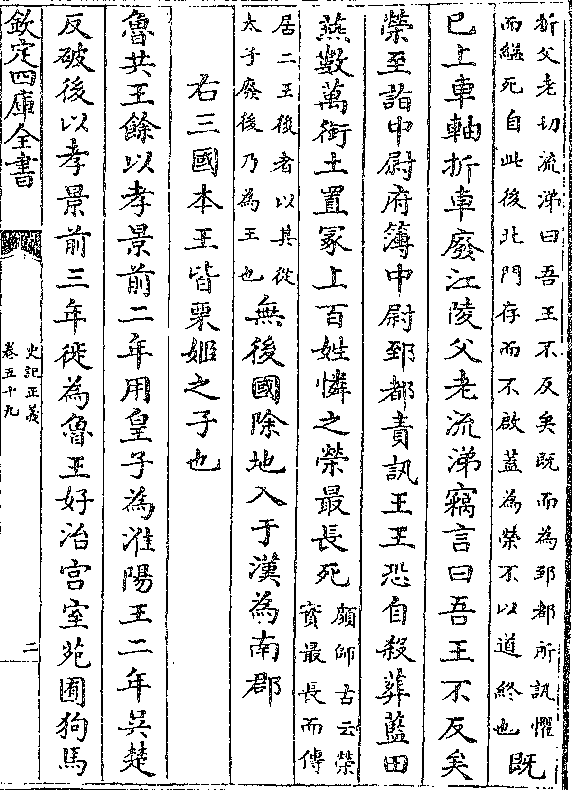 折父老切流涕曰吾王不反矣既而為郅都所訊懼
而縊死自此後北門存而不啟蓋為榮不以道終也
既
已上車軸折車廢江陵父老流涕竊言曰吾王不反矣
榮至詣中尉府簿中尉郅都責訊王王恐自殺葬藍田
燕數萬銜土置冢上百姓憐之榮最長死
顔師古云榮
實最長而傳
居二王後者以其從
太子廢後乃為王也
無後國除地入于漢為南郡
右三國本王皆栗姬之子也
魯共王餘以孝景前二年用皇子為淮陽王二年吳楚
反破後以孝景前三年徙為魯王好治宮室苑囿狗馬
欽定四庫全書
史記正義
卷五十九
二